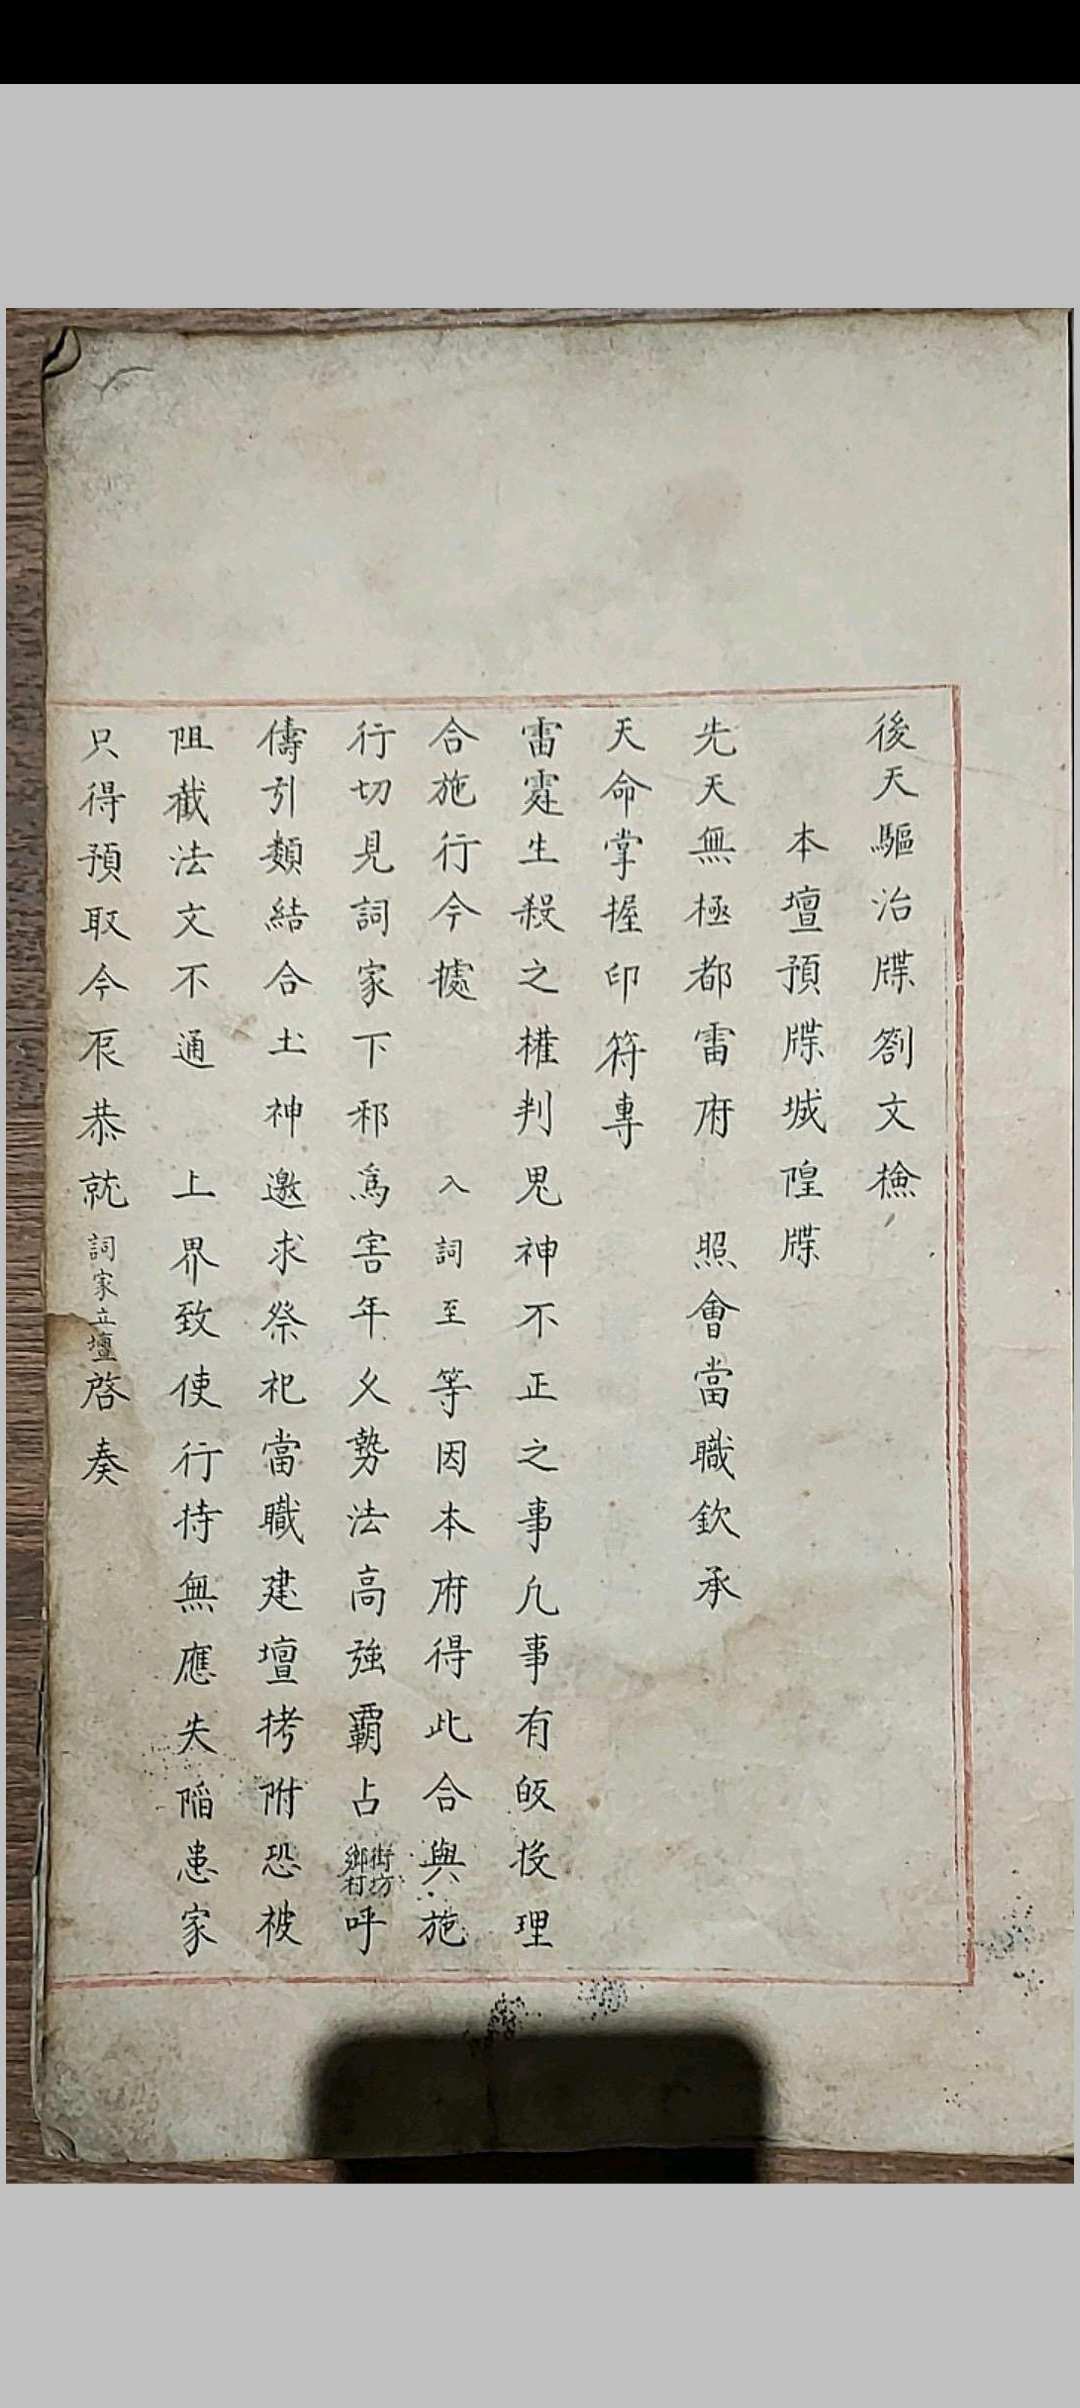 後天驅治牒劄文檢
本壇預牒城隍牒
先天無極都雷府 照會當職欽承
天命掌握印符專
雷霆生殺之權判鬼神不正之事凡事有皈投理
合施行今據 入詞至等因本府得此合與施
行切見詞家下邪為害年久勢法高強霸占街坊鄉村呼
儔引類結合土神邀求祭祀當職建壇拷附恐被
阻截法文不通 上界致使行持無應失陷患家
只得預取今 恭就詞家立壇啓奏